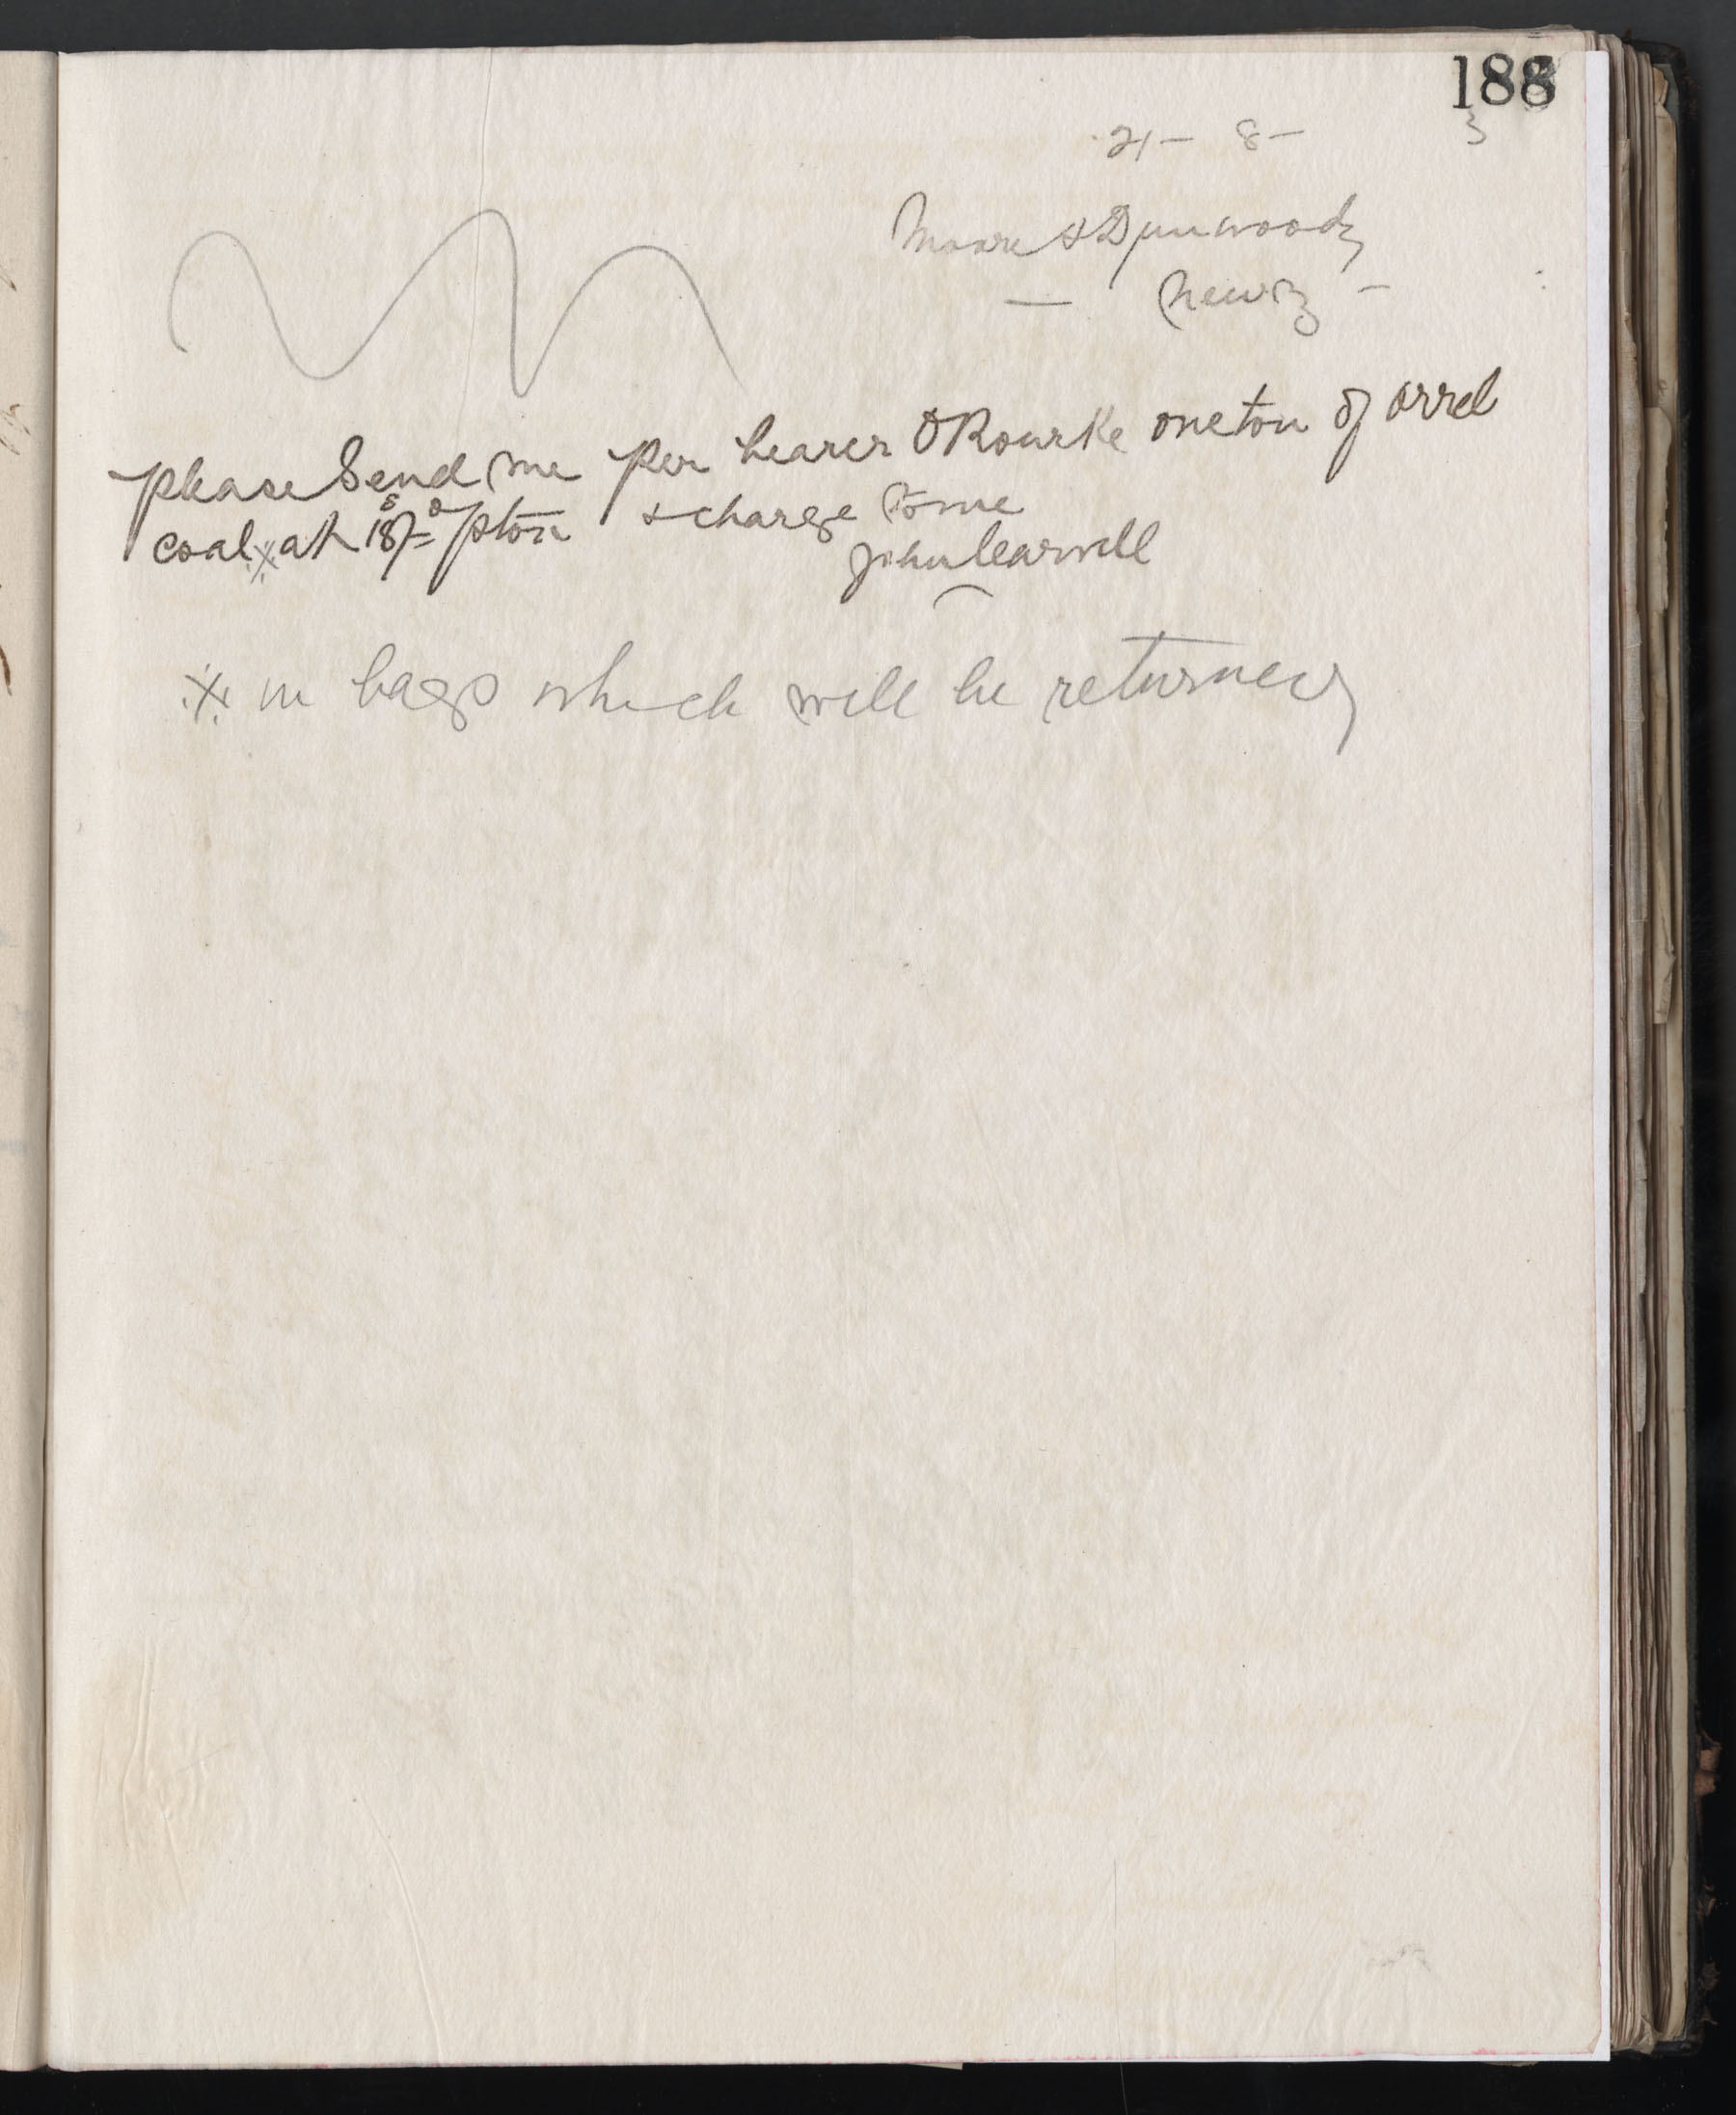 188
3
21- 8-
Moore & Dunwoody
- Newry -
please Send me per bearer O Rourke one ton of orrel
coal ※ at 18s/=d pton & charge to me
John
※ in bags which will be returned